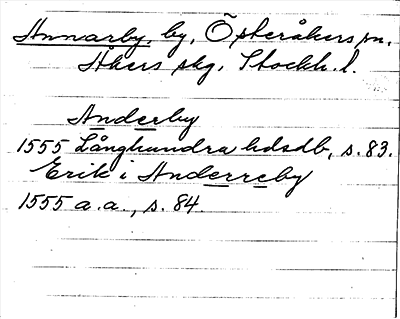 Annarby, by, Österåkers sn,
Åkers skg, Stockh. l.
Anderby
1555 Långhundra hdsdb, s. 83.
Erik i Anderreby
1555 a.a., s. 84.